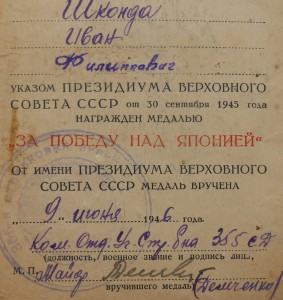 Шконда
Иван
Филиппович
УКАЗОМ ПРЕЗИДИУМА ВЕРХОВНОГО
СОВЕТА СССР от 30 сентября 1945 года
НАГРАЖДЕН МЕДАЛЬЮ
„ЗА ПОБЕДУ НАД ЯПОНИЕЙ“
От имени ПРЕЗИДИУМА ВЕРХОВНОГО
СОВЕТА СССР МЕДАЛЬ ВРУЧЕНА
„9„ июня 1946 года.
Ком. Отд. Уч. Стр. б-на 355 сд
(должность, воинское звание и подпись лиц.,
М. П. Майор
вручившего медаль) (Демченко)